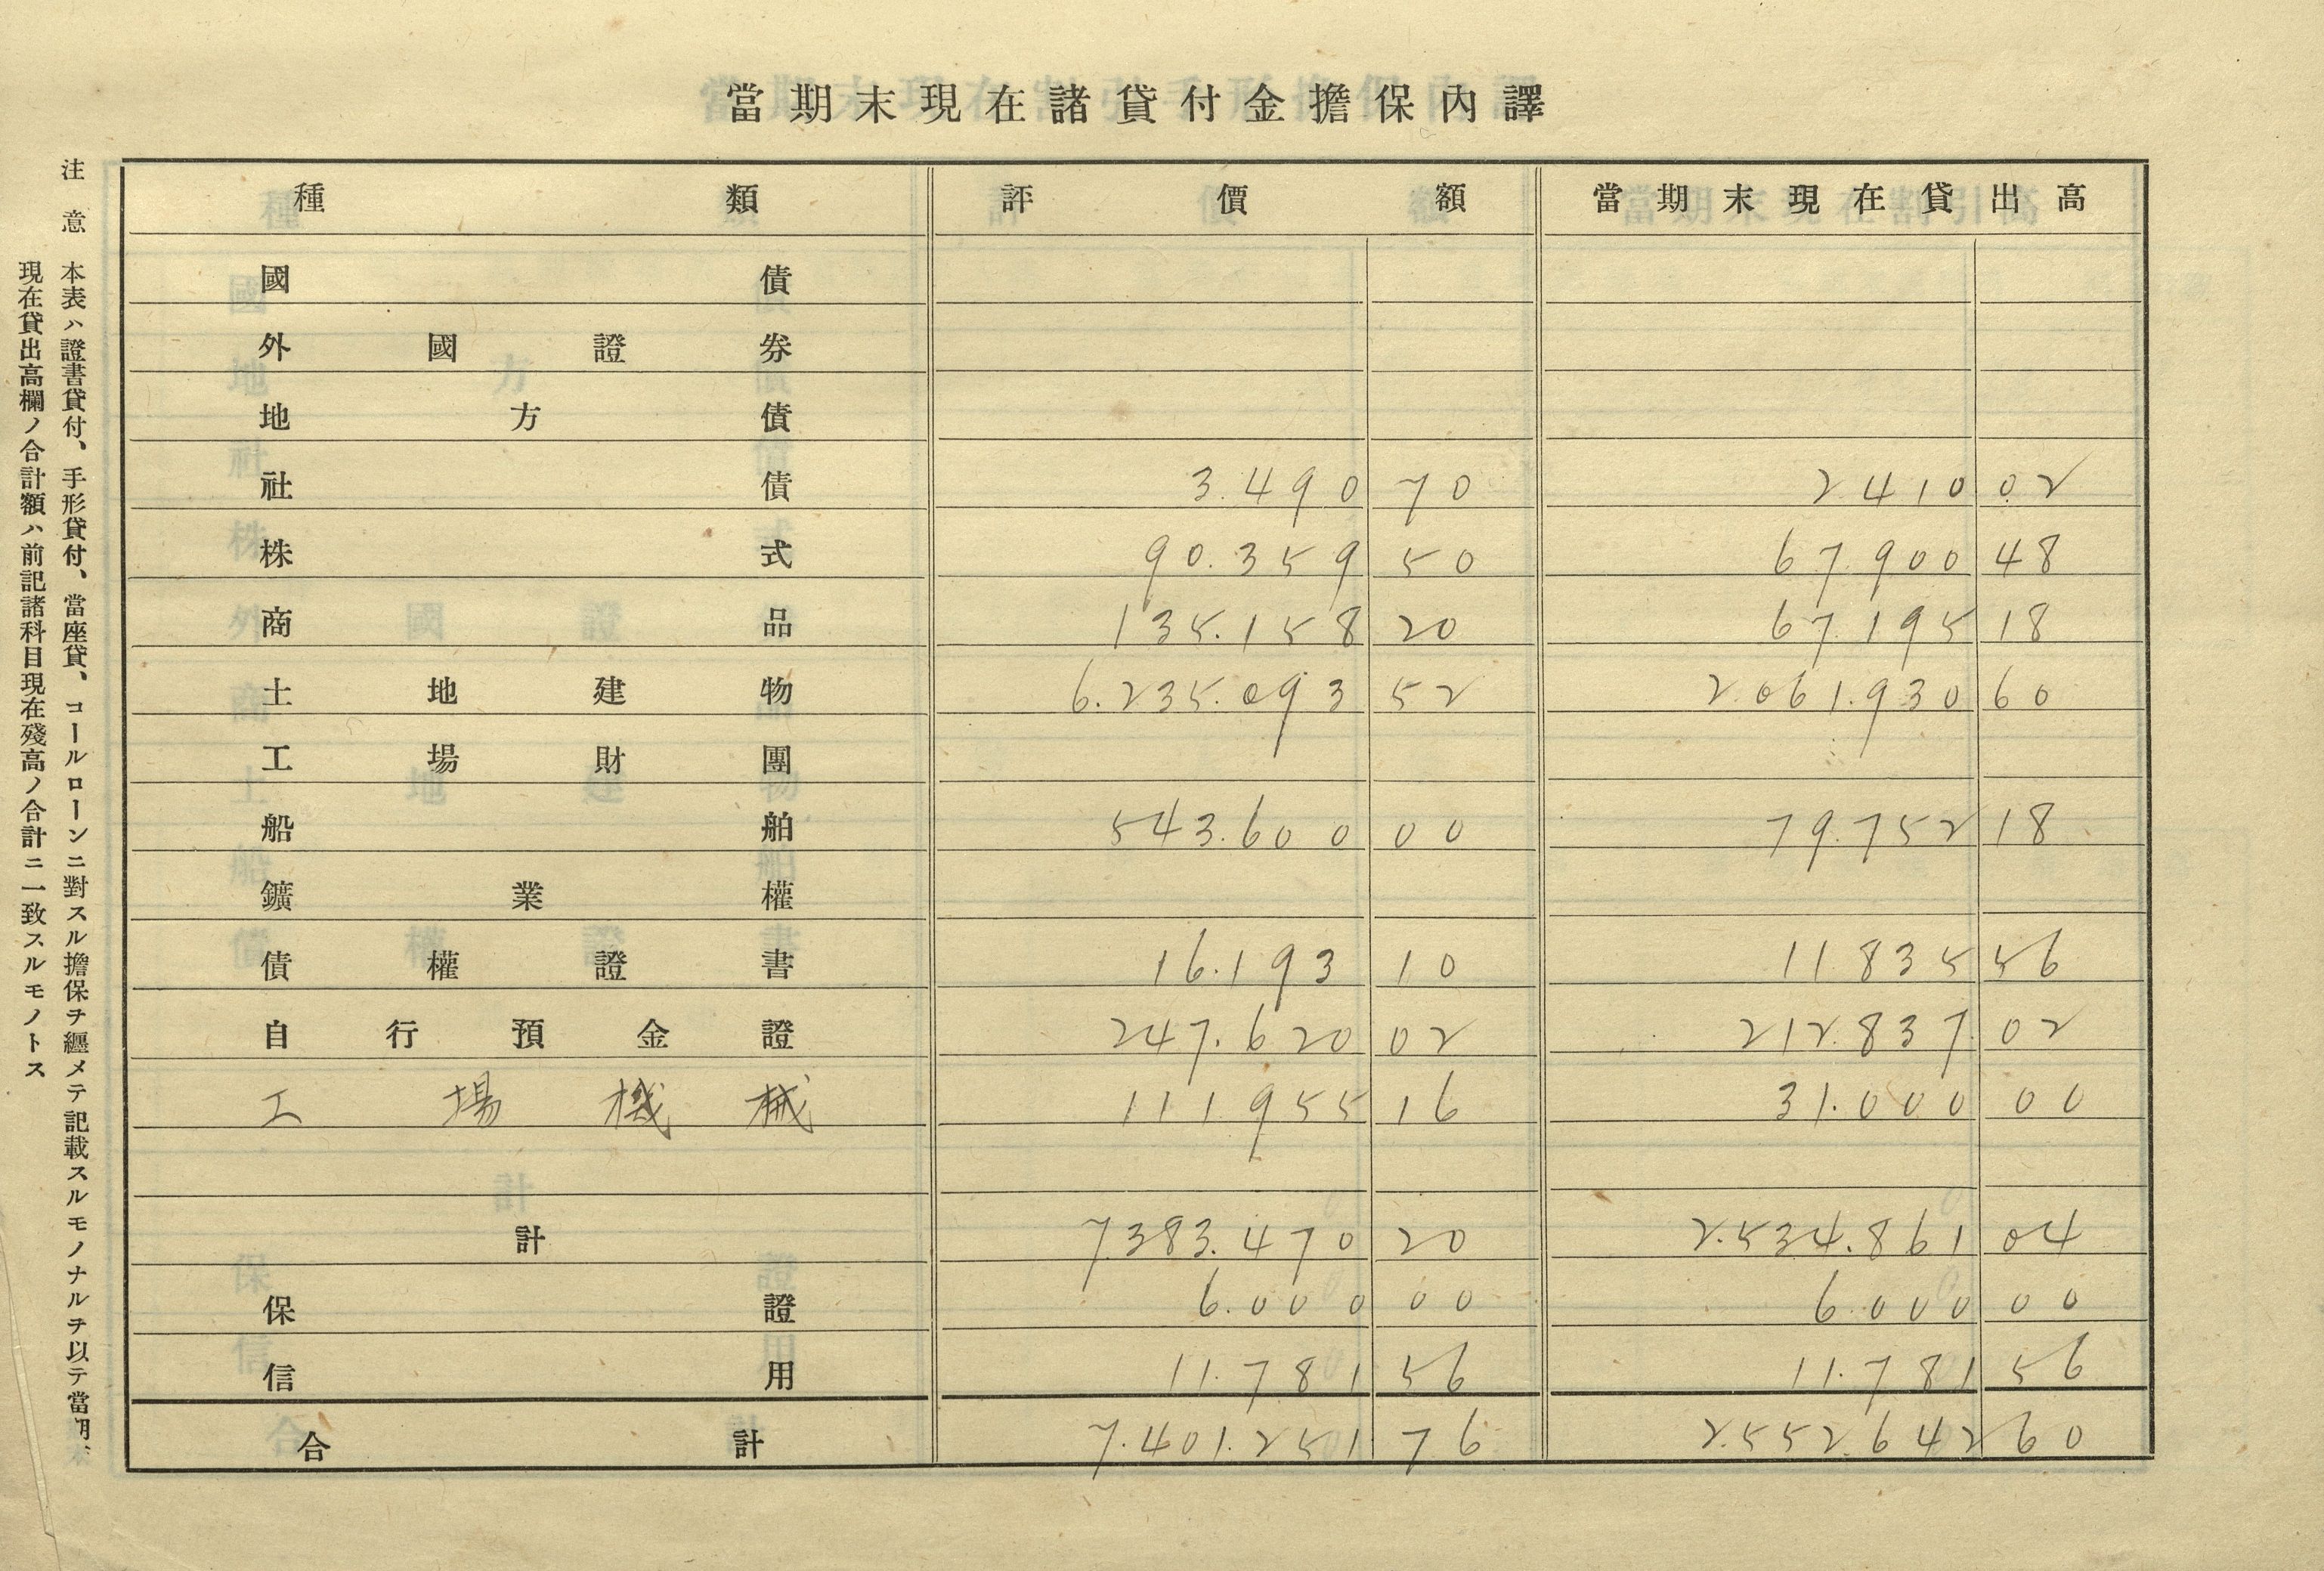 當期末現在諸貸付金擔保內譯
種類 評價額 當期末現在貸出高
國債
外國證券
地方債
社債 3.490 70 2.410 02
株式 90.359 50 67.900 48
商品 135.158 20 67.195 18
土地建物 6.235.093 52 2.061.930 60
工場財團
船舶 543.600 00 79.752 18
鑛業權
債權證書 16.193 10 11835 56
自行預金證 247.620 02 212.837 02
工場機械 111955 16 31.000 00
計 7.383.470 20 2.534.861 04
保證 6.000 00 6.000 00
信用 11.781 56 11.781 56
合計 7.401.251 76 2.552.642 60
注意 本表ハ證書貸付、手形貸付、當座貸、コールローンニ對スル擔保ヲ纒メテ記載スルモノナルヲ以テ當期末
現在貸出高欄ノ合計額ハ前記諸科目現在殘高ノ合計ニ一致スルモノトス